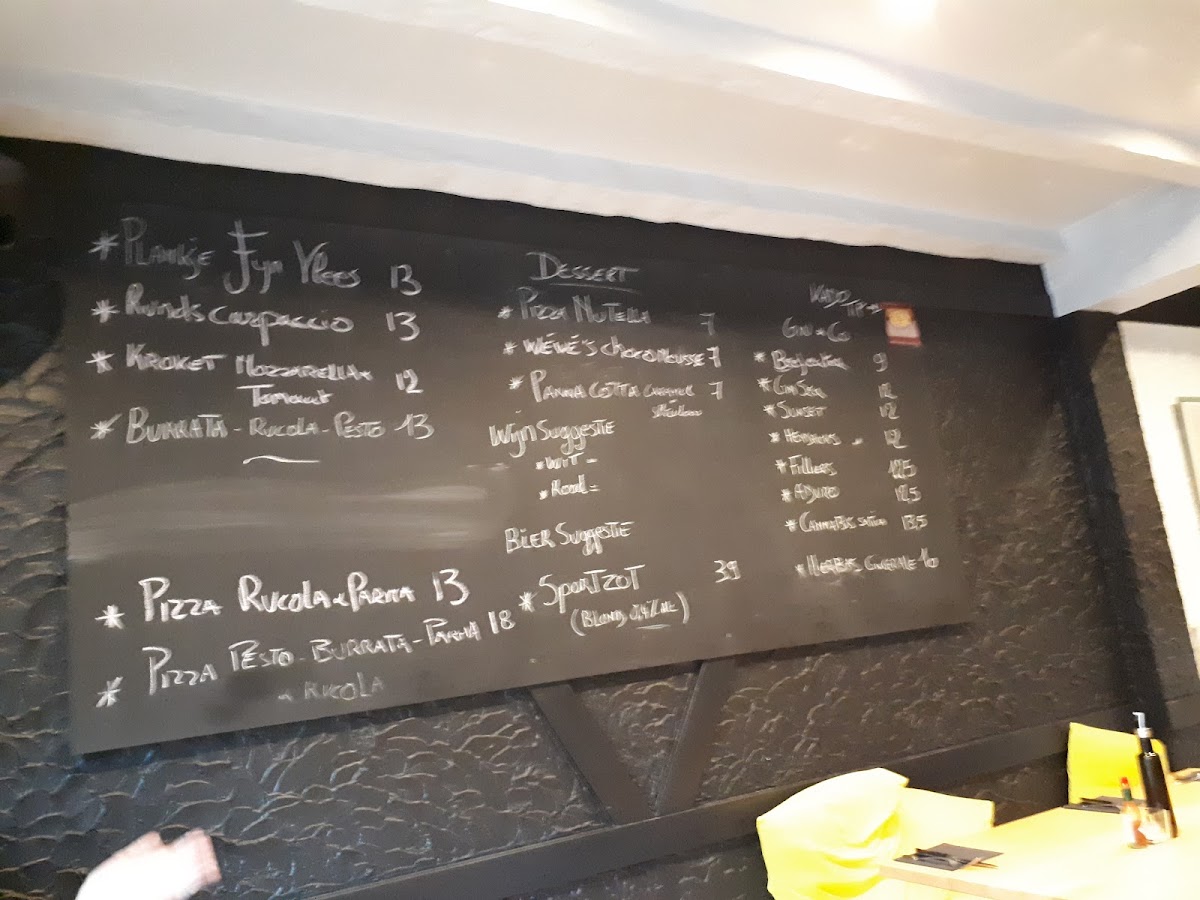 * Plankje Fijn Vlees 13
* Runds carpaccio 13
* Kroket Mozzarella
Tomaat 12
* Burrata - Rucola - Pesto 13
* Pizza Rucola & Parma 13
* Pizza Pesto - Burrata - Parma 18
& Rucola
Dessert
* Pizza Nutella 7
* Wéwé's Chocomousse 7
* Panna Cotta 7
Wijn Suggestie
* Wit -
* Rood -
Bier Suggestie
* Sportzot 39
(Blond
Gin & Co
9
* Gin Sea 12
* Sunset 12
* Hendricks 12
* Filliers 12,5
12,5
* Cannabis Sativa 13,5
10